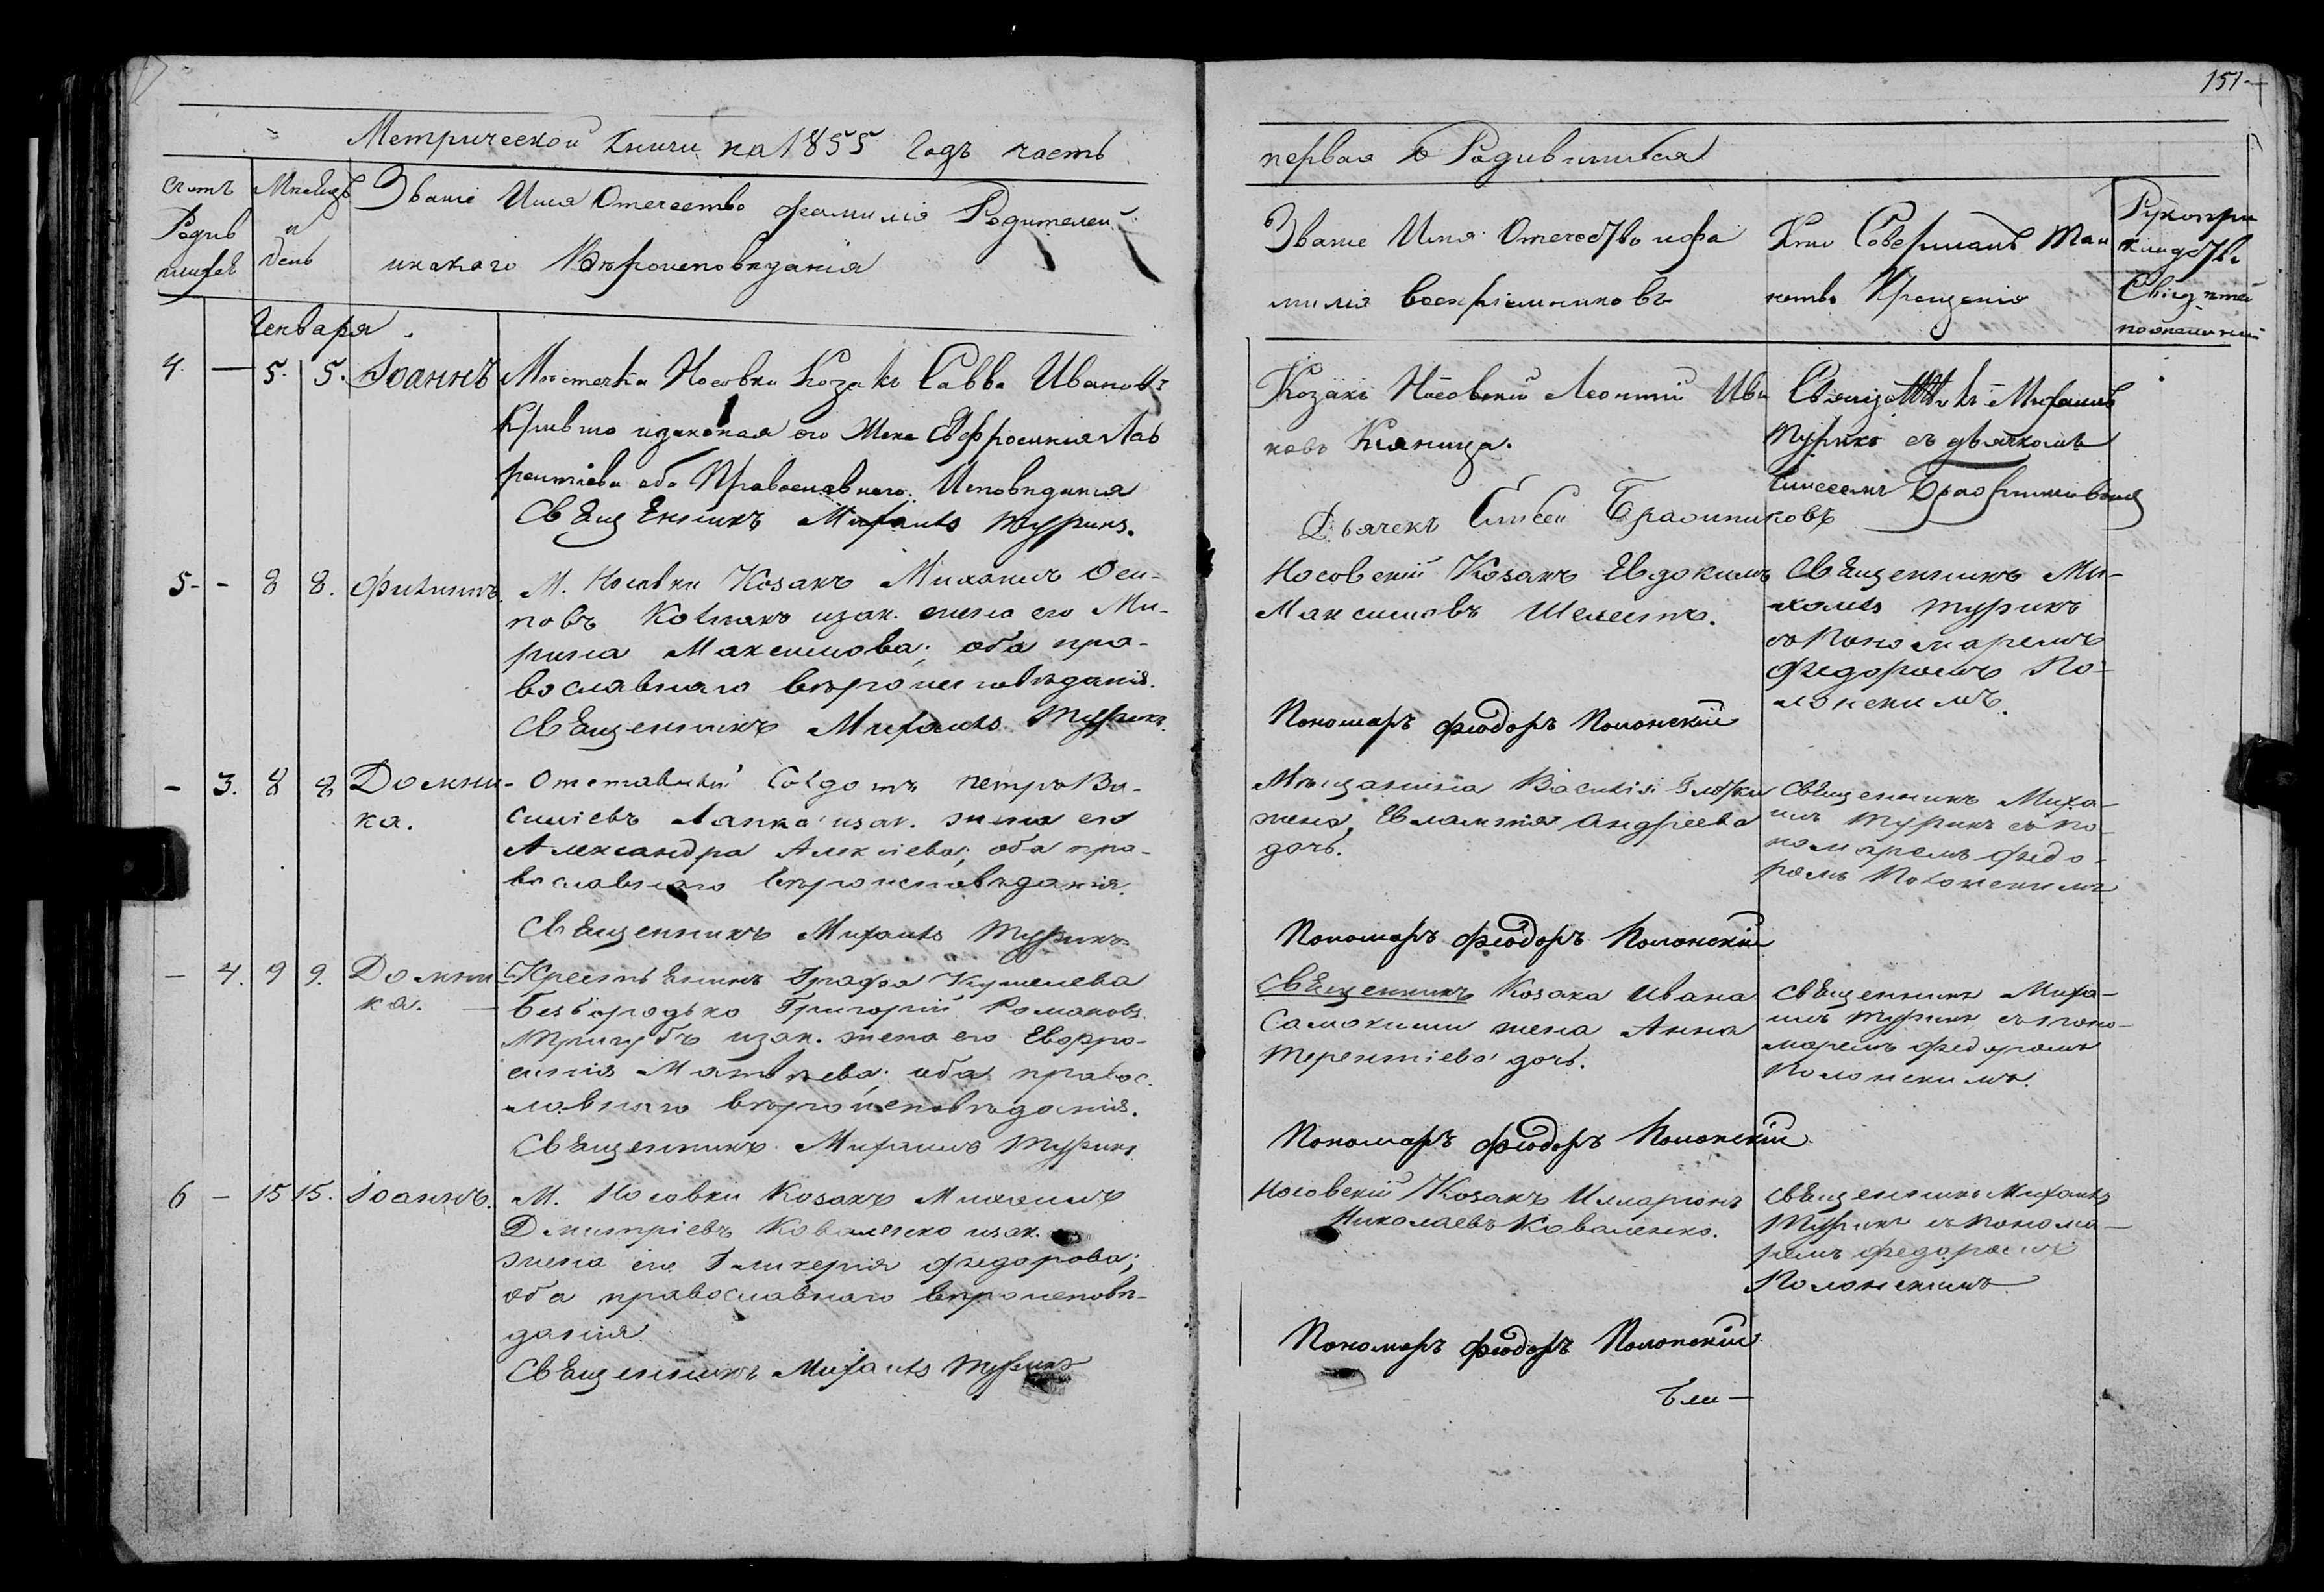 151
Метрической Книги на 1855 Годъ часть
первая о Родившихся
Счетъ Родившихся
Мѣсяцъ и день
Званіе Имя Отчество фамилія Родителей
и какого Вѣроисповѣданія
Званіе Имя Отечество и фа
милія воспріемниковъ
Кто Совершалъ Таи
нство Крещенія
Рукопри
кладство
Свидѣтелей
по желанію
Генваря
4. — 5. 5. Іоаннъ
Мѣстечка Носовки Козакъ Савва Ивановъ
законная его Жена Евфросинія Лав
рентіева оба Православнаго Исповѣданія
Священникъ Михаилъ Турикъ.
Козакъ Носовскій Леонтій Ива
новъ Кіяница.
Дьячекъ Елисей
Священникъ Михаилъ
Турикъ съ дьячкомъ
Елисеемъ
5 - - 8 8. Филиппъ.
М. Носовки Козакъ Михаилъ Оси-
повъ Колпакъ изак. жена его Ма-
рина Максимова; оба пра-
вославнаго вѣроисповѣданія.
Священникъ Михаилъ Турикъ.
Носовскій Козакъ Евдокимъ
Максимовъ Шелестъ.
Пономаръ Феодоръ Полонскій
Священникъ Ми-
хаилъ Турикъ
съ Пономаремъ
Федоромъ По-
лонскимъ.
- 3. 8 8 Домни-
ка.
Отставный Солдатъ Петръ Ва-
силіевъ Лапка изак. жена его
Александра Алексіева; оба пра-
вославнаго вѣроисповѣданія.
Священникъ Михаилъ Турикъ
Мѣщанина Василія
жена, Евлампія Андреева
дочь.
Пономаръ Феодоръ Полонскій
Священникъ Миха-
илъ Турикъ съ По-
номаремъ Федо-
ромъ Полонскимъ
— 4. 9 9. Домни
ка. —
Крестьянинъ Графа Кушелева
Безбородько Григорій Романовъ
Пригубъ изак. жена его Евфро-
синія Матвѣева; оба правос-
лавнаго вѣроисповѣданія.
Священникъ Михаилъ Турикъ
Священникъ Козака Ивана
Самохиши жена Анна
Терентіева дочь.
Пономаръ Феодоръ Полонскій
Священникъ Миха-
илъ Турикъ съ поно-
маремъ Федоромъ
Полонскимъ.
6 — 15 15. Іоаннъ.
М. Носовки Козакъ Михаилъ
Дмитріевъ Коваленко изак.
жена его Гликерія Федорова;
оба православнаго вѣроисповѣ-
данія.
Священникъ Михаилъ Турикъ
Носовскій Козакъ Иларіонъ
Николаевъ Коваленко.
Пономаръ Феодоръ Полонскій
Священникъ Михаилъ
Турикъ съ Понома-
ремъ Федоромъ
Полонскимъ